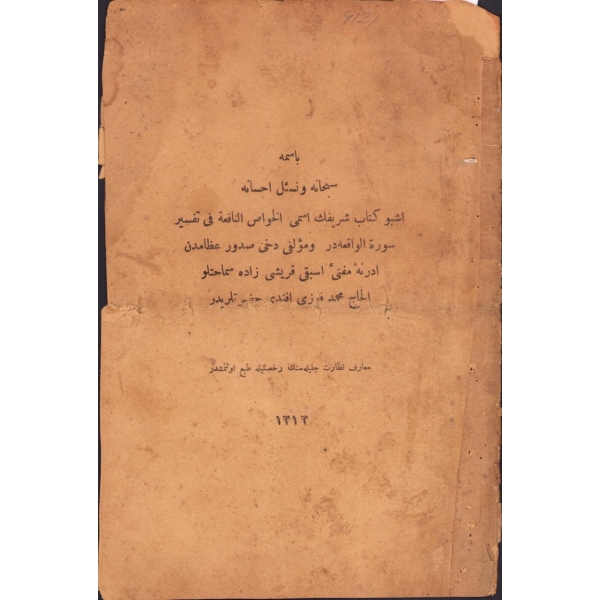 9127
باسمه
سبحانه و نسئل احسانه
اشبو كتاب شريفك اسمى الخواص النافعة فى تفسير
سورة الواقعه‌در ومؤلفى دخى صدور عظامدن
ادرنه مفتئ اسبقى قريشى زاده سماحتلو
الحاج محمد فوزى افندى حضرتلريدر
معارف نظارت جليله‌سنك رخصتيله طبع اولنمشدر
١٣١٣